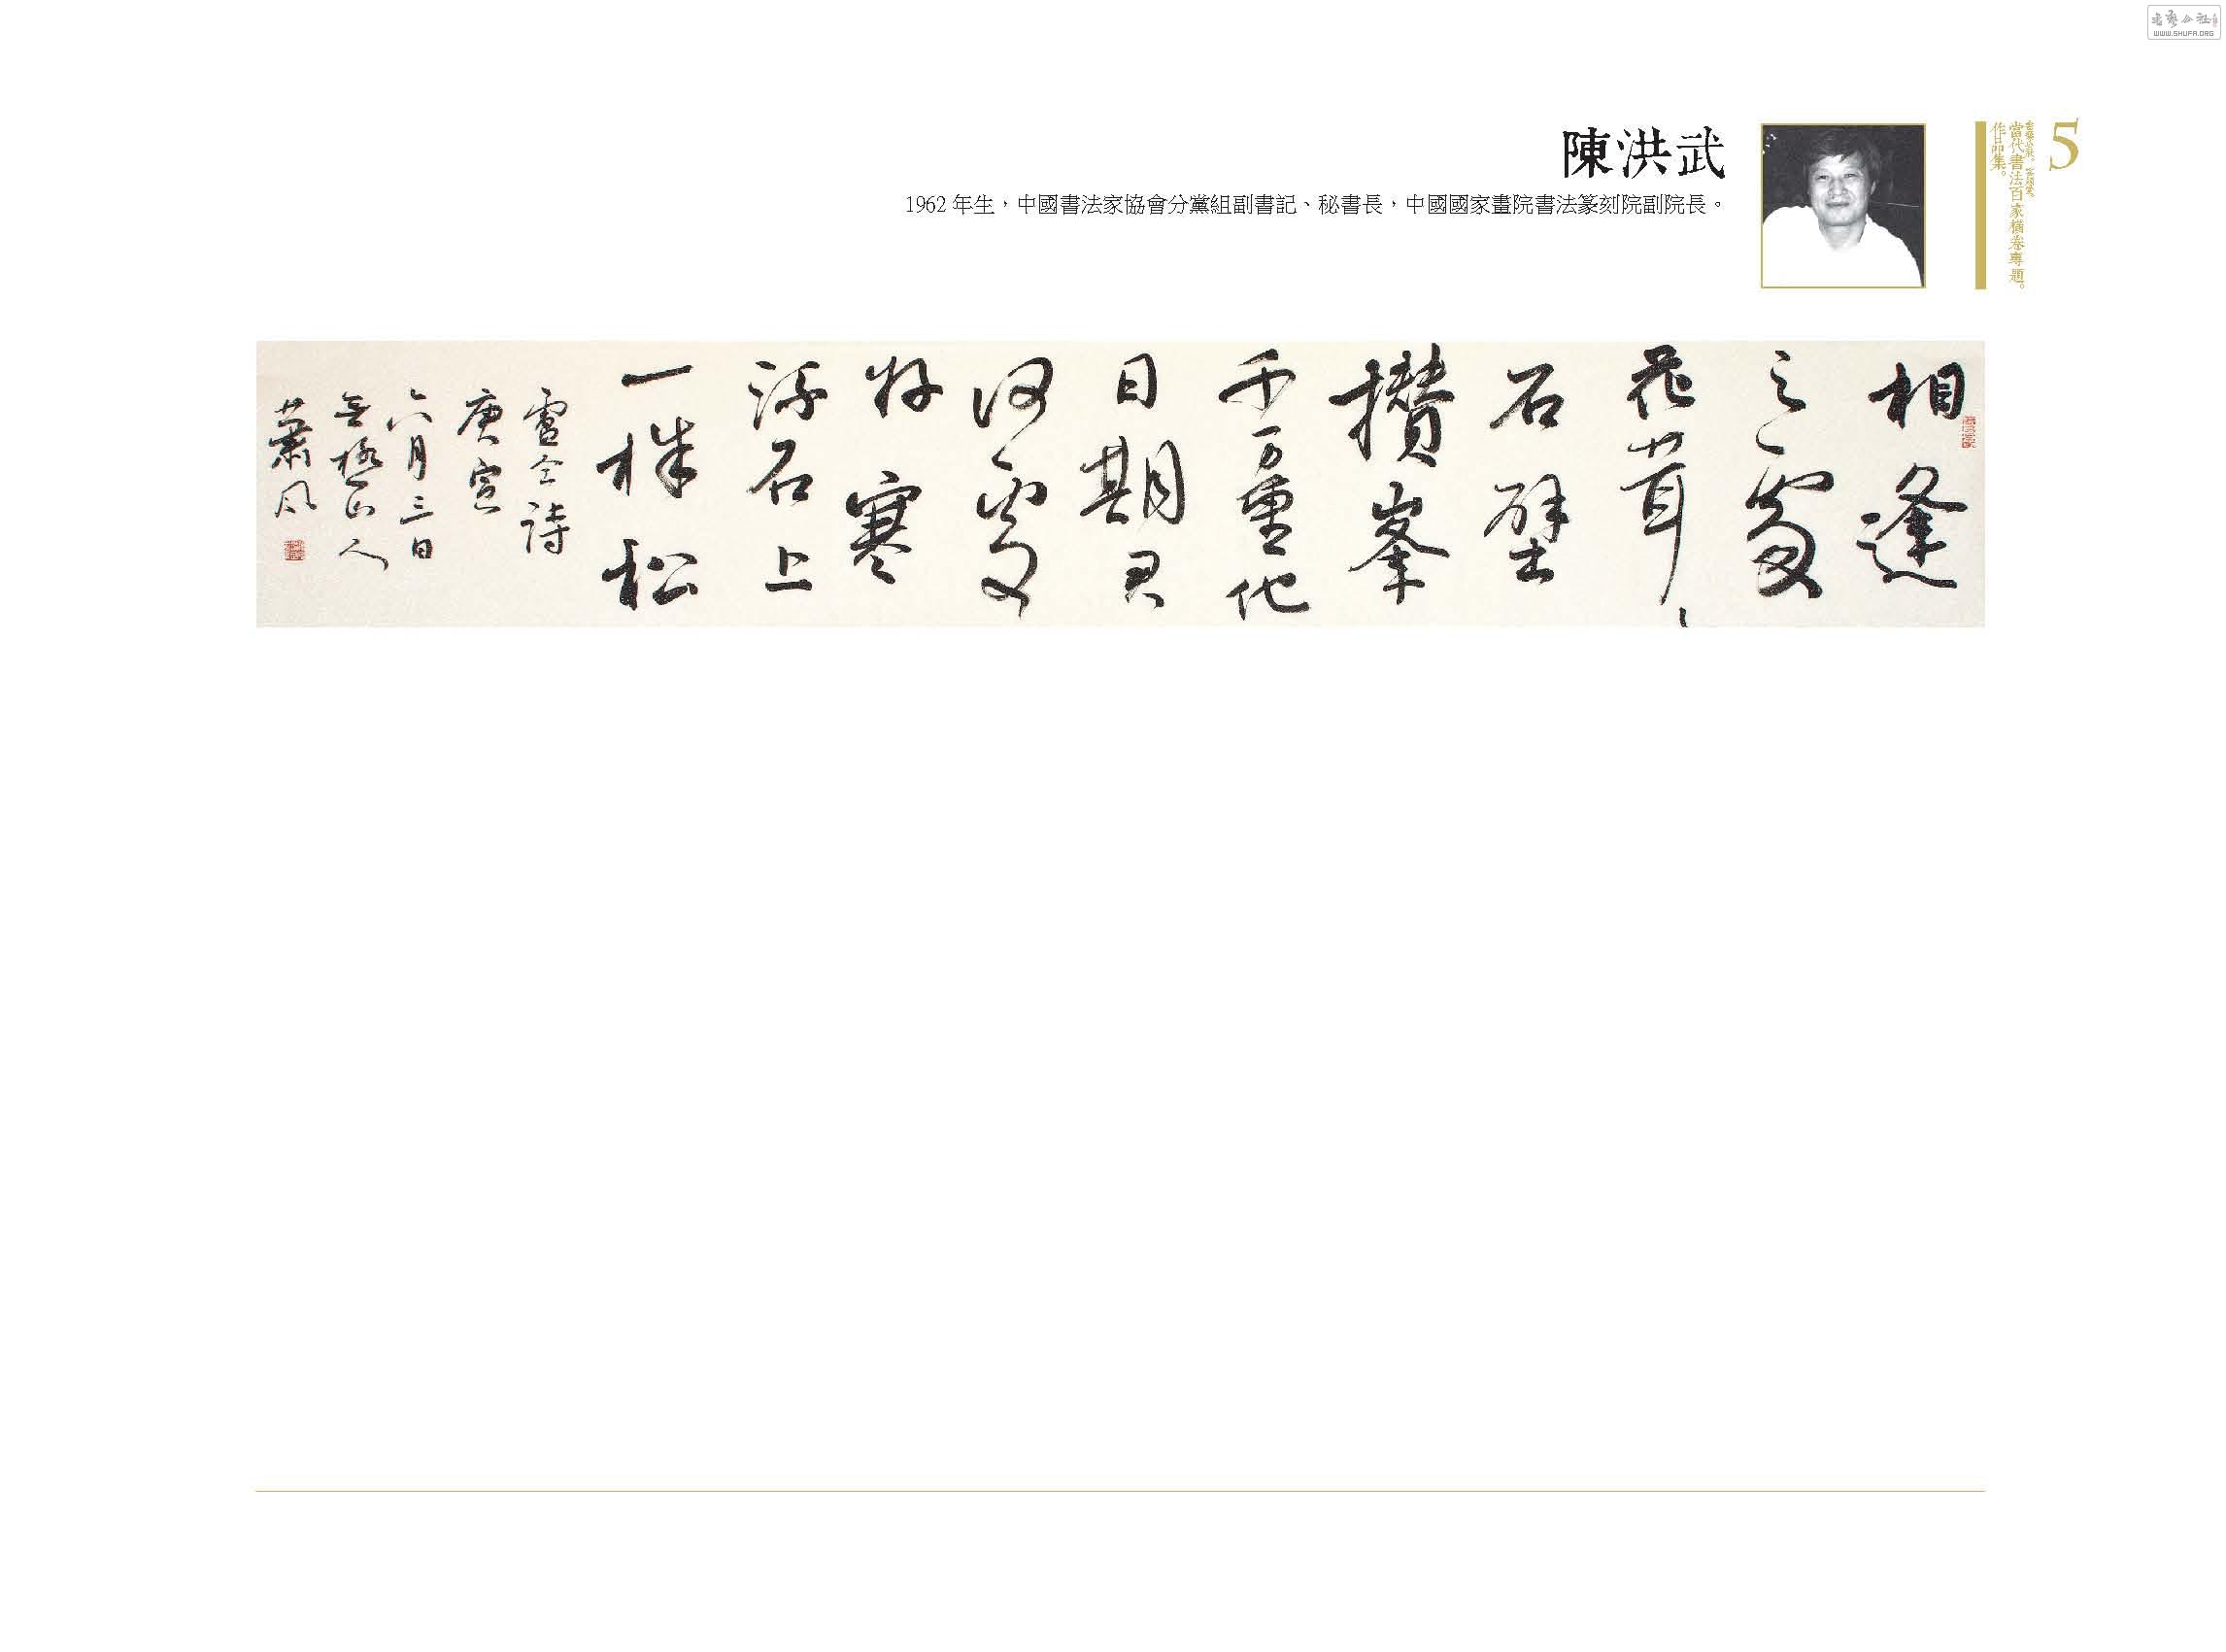 5
當代書法百家橫卷專題。
作品集。
陳洪武
1962 年生，中國書法家協會分黨組副書記、秘書長，中國國家畫院書法篆刻院副院長。
相逢
之處
花茸〻
石壁
攢峯
千万重他
日期君
何處
好寒
流石上
一株松
盧仝詩
庚寅
六月三日
無極山人
蕭風
WWW.SHUFA.ORG